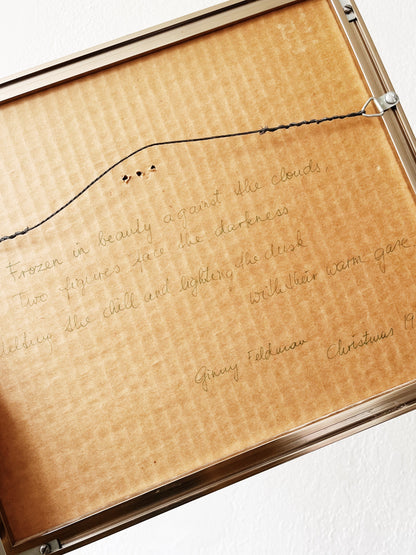 Frozen in beauty against the clouds,
Two figures face the darkness
the chill and lighting the dusk
with their warm gaze
Ginny Feldman Christmas 19